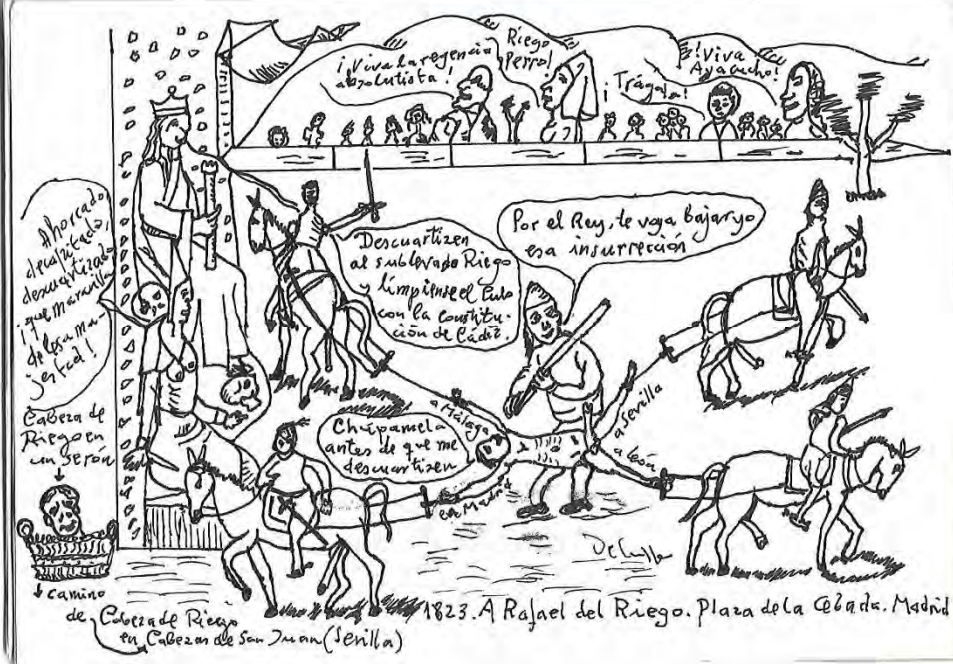 ¡Viva la regencia
absolutista!
Riego
Perro!
¡Trágala!
¡Viva
Ayacucho!
Ahorcado,
decapitado,
descuartizado
¡que maravilla
de lesa ma-
jestad!
Descuartizen
al sublevado Riego
y límpiense el Culo
con la Constitu-
ción de Cádiz.
Por el Rey, te voy a bajar yo
esa insurrección
Chúpamela
antes de que me
descuartizen
a Málaga
a Sevilla
a León
en Madrid
Cabeza de
Riego en
un Serón
camino
de Cabeza de Riego
en Cabezas de San Juan (Sevilla)
1823. A Rafael del Riego. Plaza de la Cebada. Madrid